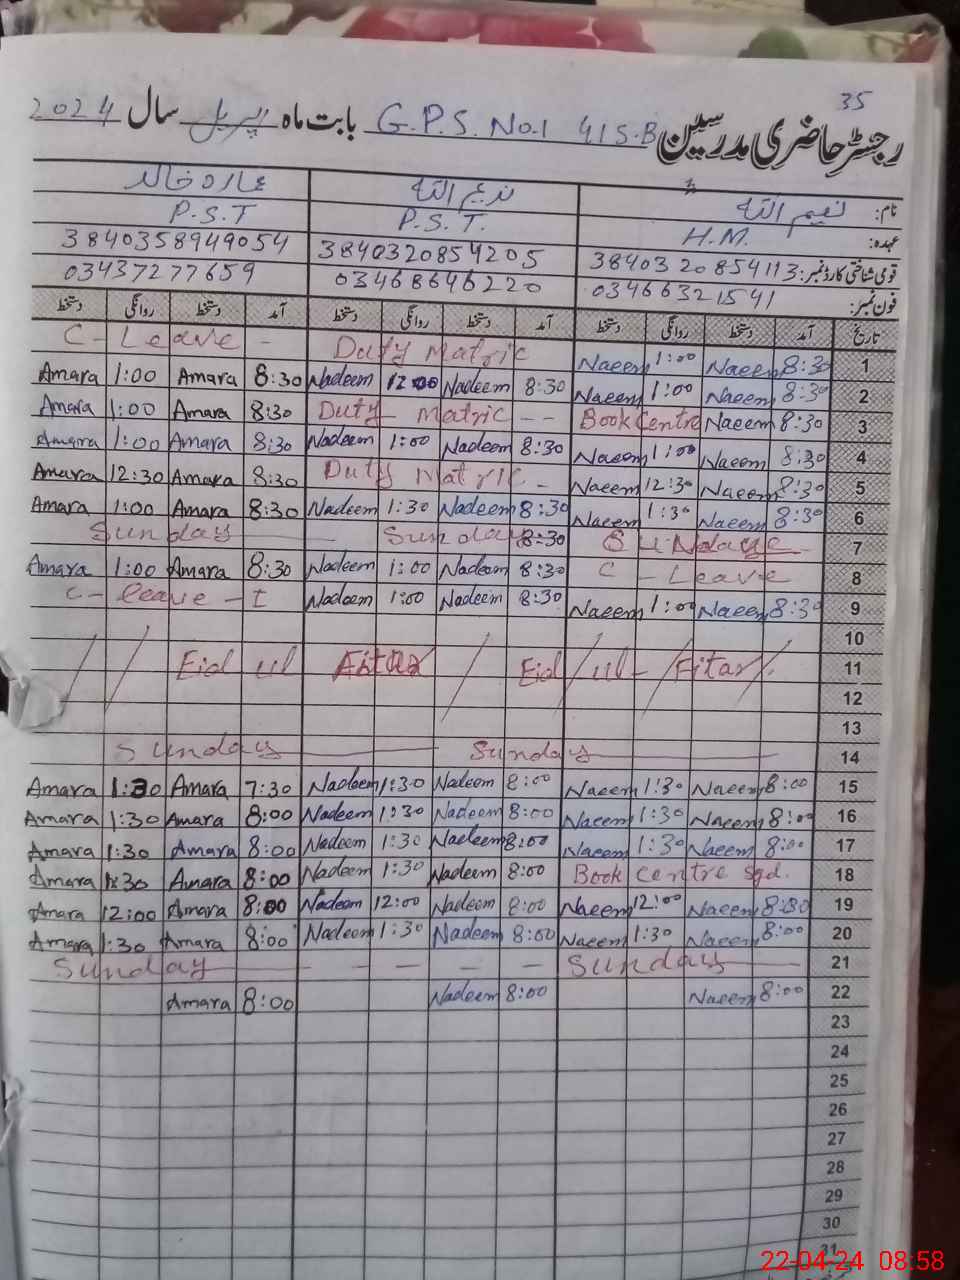 35
رجسٹر حاضری مدرسین G.P.S. No.1 41 S.B بابت ماہ اپریل سال 2024
نام: نعیم اللہ ندیم اللہ عمارہ خالد
عہدہ: H.M. P.S.T. P.S.T
قومی شناختی کارڈ نمبر: 3840320854113 3840320854205 3840358949054
فون نمبر: 03466321541 03468646220 03437277659
تاریخ آمد دستخط روانگی دستخط آمد دستخط روانگی دستخط آمد دستخط روانگی دستخط
C - Leave - Duty Matric Naeem 1:00 Naeem 8:30 1
Amara 1:00 Amara 8:30 Nadeem 12:00 Nadeem 8:30 Naeem 1:00 Naeem 8:30 2
Amara 1:00 Amara 8:30 Duty Matric -- Book Centre Naeem 8:30 3
Amara 1:00 Amara 8:30 Nadeem 1:00 Nadeem 8:30 Naeem 1:00 Naeem 8:30 4
Amara 12:30 Amara 8:30 Duty Matric - Naeem 12:30 Naeem 8:30 5
Amara 1:00 Amara 8:30 Nadeem 1:30 Nadeem 8:30 Naeem 1:30 Naeem 8:30 6
Sunday Sunday 8:30 Sunday 7
Amara 1:00 Amara 8:30 Nadeem 1:00 Nadeem 8:30 C - Leave 8
C - leave - I Nadeem 1:00 Nadeem 8:30 Naeem 1:00 Naeem 8:30 9
10
Eid ul Fitar Eid ul - Fitar 11
12
13
Sunday Sunday 14
Amara 1:30 Amara 7:30 Nadeem 1:30 Nadeem 8:00 Naeem 1:30 Naeem 8:00 15
Amara 1:30 Amara 8:00 Nadeem 1:30 Nadeem 8:00 Naeem 1:30 Naeem 8:00 16
Amara 1:30 Amara 8:00 Nadeem 1:30 Nadeem 8:00 Naeem 1:30 Naeem 8:00 17
Amara 1:30 Amara 8:00 Nadeem 1:30 Nadeem 8:00 Book Centre Sgd. 18
Amara 12:00 Amara 8:00 Nadeem 12:00 Nadeem 8:00 Naeem 12:00 Naeem 19
Amara 1:30 Amara 8:00 Nadeem 1:30 Nadeem 8:00 Naeem 1:30 Naeem 8:00 20
Sunday - - - - - Sunday 21
Amara 8:00 Nadeem 8:00 Naeem 8:00 22
23
24
25
26
27
28
29
30
31
22-04-24 08:58